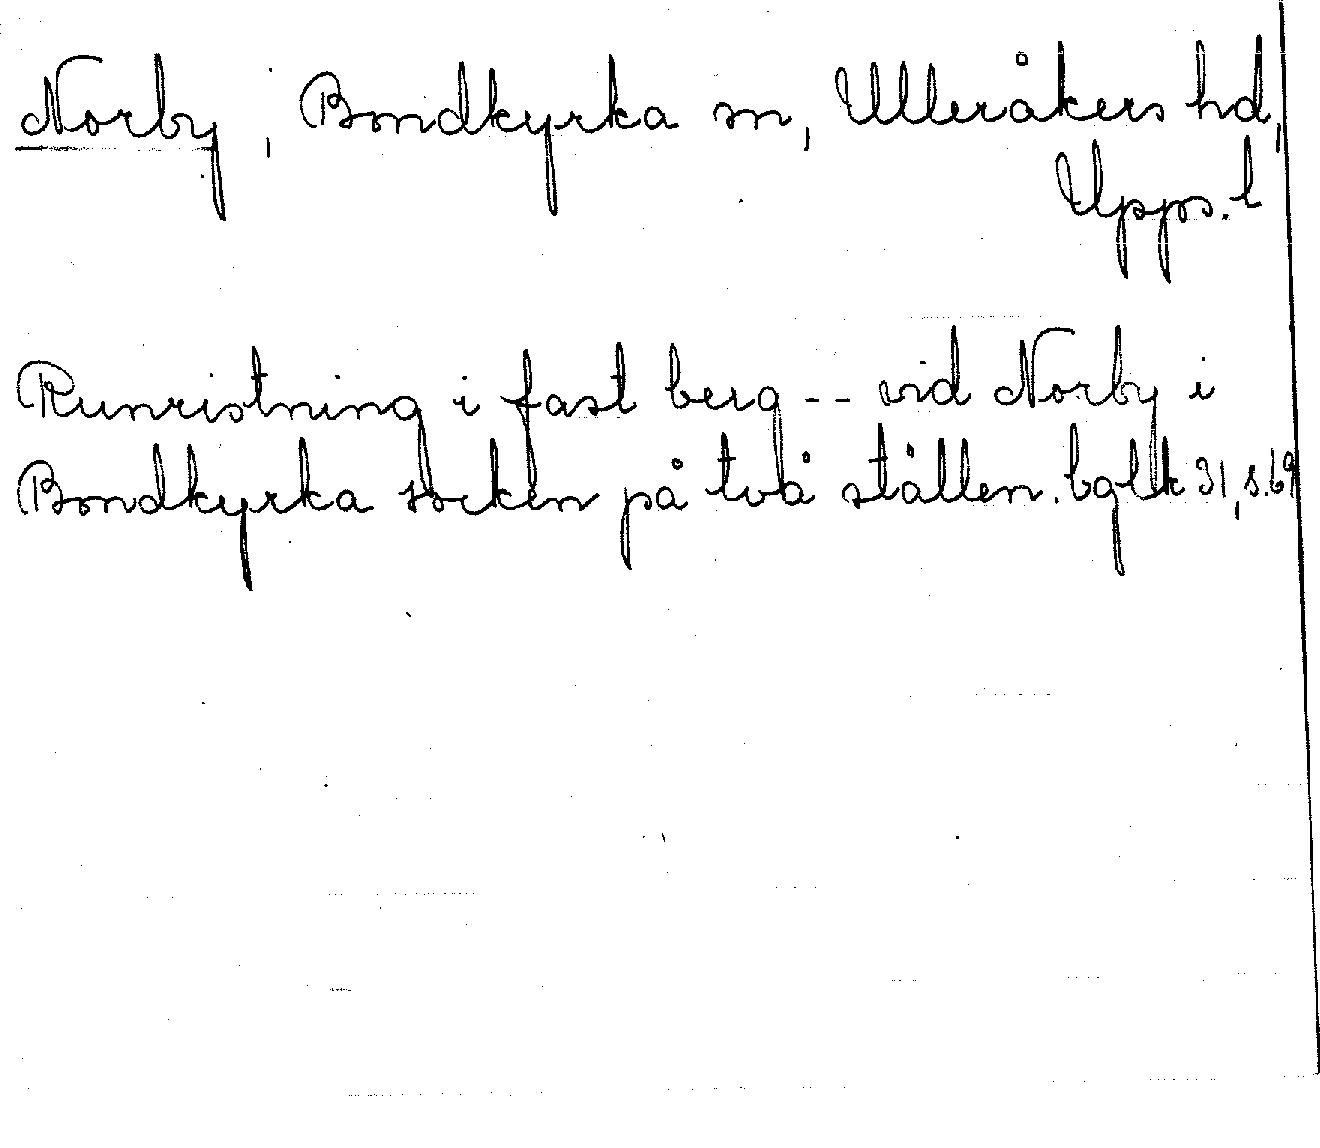 Norby, Bondkyrka sn, Ulleråkers hd,
Upps. l
Runristning i fast berg -- vid Norby i
Bondkyrka socken på två ställen. bglk 31, s. 69